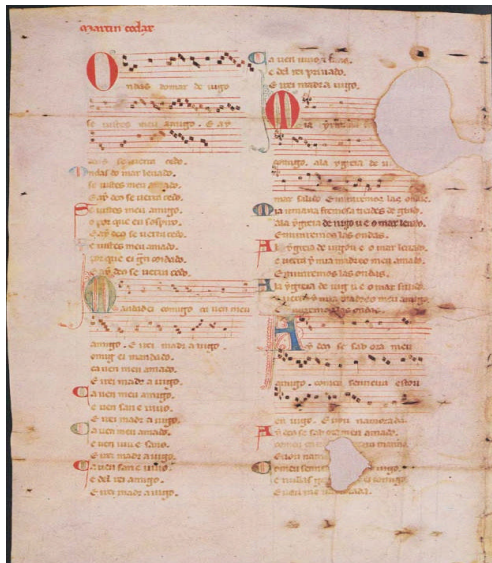 martin codax
Ondas do mar de uigo
se uistes meu amigo. E ay
deus se uerra cedo.
Ondas do mar leuado.
se uistes meu amado.
E ay deus se uerra cedo.
Se uistes meu amigo.
o por que eu sospiro.
E ay deus se uerra cedo.
Se uistes meu amado.
por que ei gran coidado.
E ay deus se uerra cedo.
Mandadei comigo ca uen meu
amigo. E irei madr a uigo
comigo ei mandado.
ca uen meu amado.
E irei madr a uigo.
Ca uen meu amigo.
e uen san e uiuo.
E irei madr a uigo.
Ca uen meu amado.
e uen uiu e sano.
E irei madr a uigo.
Ca uen san e uiuo.
e del rei amigo.
E irei madr a uigo.
Ca uen uiuo e sano.
e del rei priuado.
E irei madr a uigo.
Mia
comigo. a la ygreia de
mar salido. E miraremos las ondas.
Mia irmana fremosa treides de grado.
a la ygreia de uigo u e o mar leuado.
E miraremos las ondas.
A la ygreia de uigo u e o mar leuado.
e uerra y mia madre o meu amado.
E miraremos las ondas.
A la ygreia de uigo u e o mar salido.
e uerra y mia madre o meu amigo.
E miraremos las ondas.
Ay deus se sab ora meu
amigo. com eu senneira estou
en uigo. E uou namorada.
Ay deus se sab ora meu amado.
com eu
E uou
Com eu uigo.
e nullas comigo.
E uou